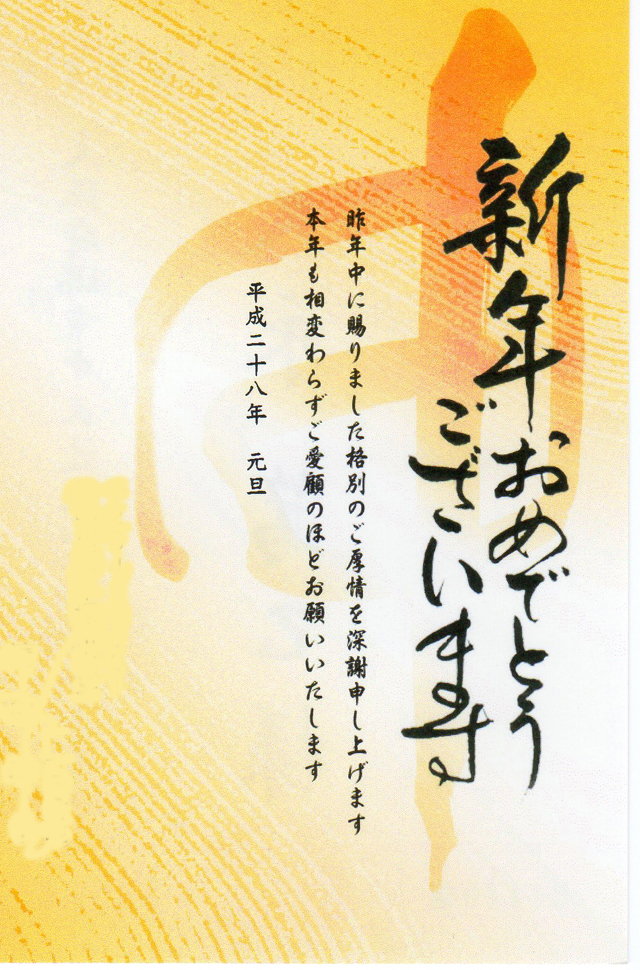 新年おめでとう
ございます
昨年中に賜りました格別のご厚情を深謝申し上げます
本年も相変わらずご愛顧のほどお願いいたします
平成二十八年　元旦